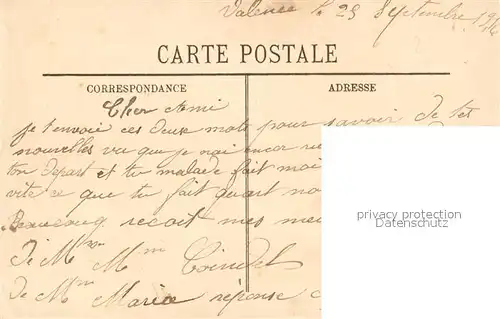 Valence le 25 Septembre 1916
CARTE POSTALE
CORRESPONDANCE
ADRESSE
Cher Ami
je t'envoie ces deux mots pour savoir de tes
nouvelles vu que je n'ai encor
ton depart et tu malade fait moi
vite ce que tu fait quant
Beaucoup recoit mes
de Mme
de Maria réponse
privacy protection
Datenschutz